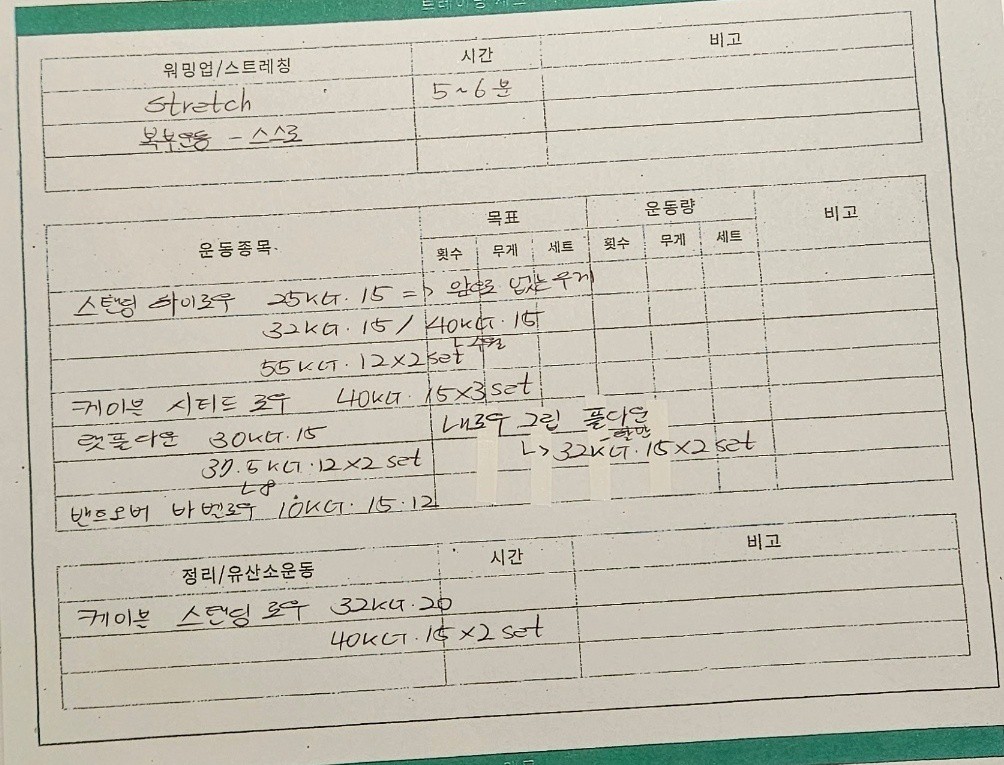 워밍업/스트레칭 시간 비고
stretch 5~6분
복부운동 - 스스로
운동종목 목표 운동량 비고
횟수 무게 세트 횟수 무게 세트
스탠딩 하이로우 25KG. 15 => 앞으로 없는 무게
32KG. 15 / 40KG. 15
55KG. 12×2set
케이블 시티드 로우 40KG. 15×3set
랫풀다운 30KG. 15 내로우 그립 풀다운
37.5KG. 12×2 set ㄴ> 32KG. 15×2 set
밴트오버 바벨로우 10KG. 15. 12
정리/유산소운동 시간 비고
케이블 스탠딩 로우 32KG. 20
40KG. 15×2 set